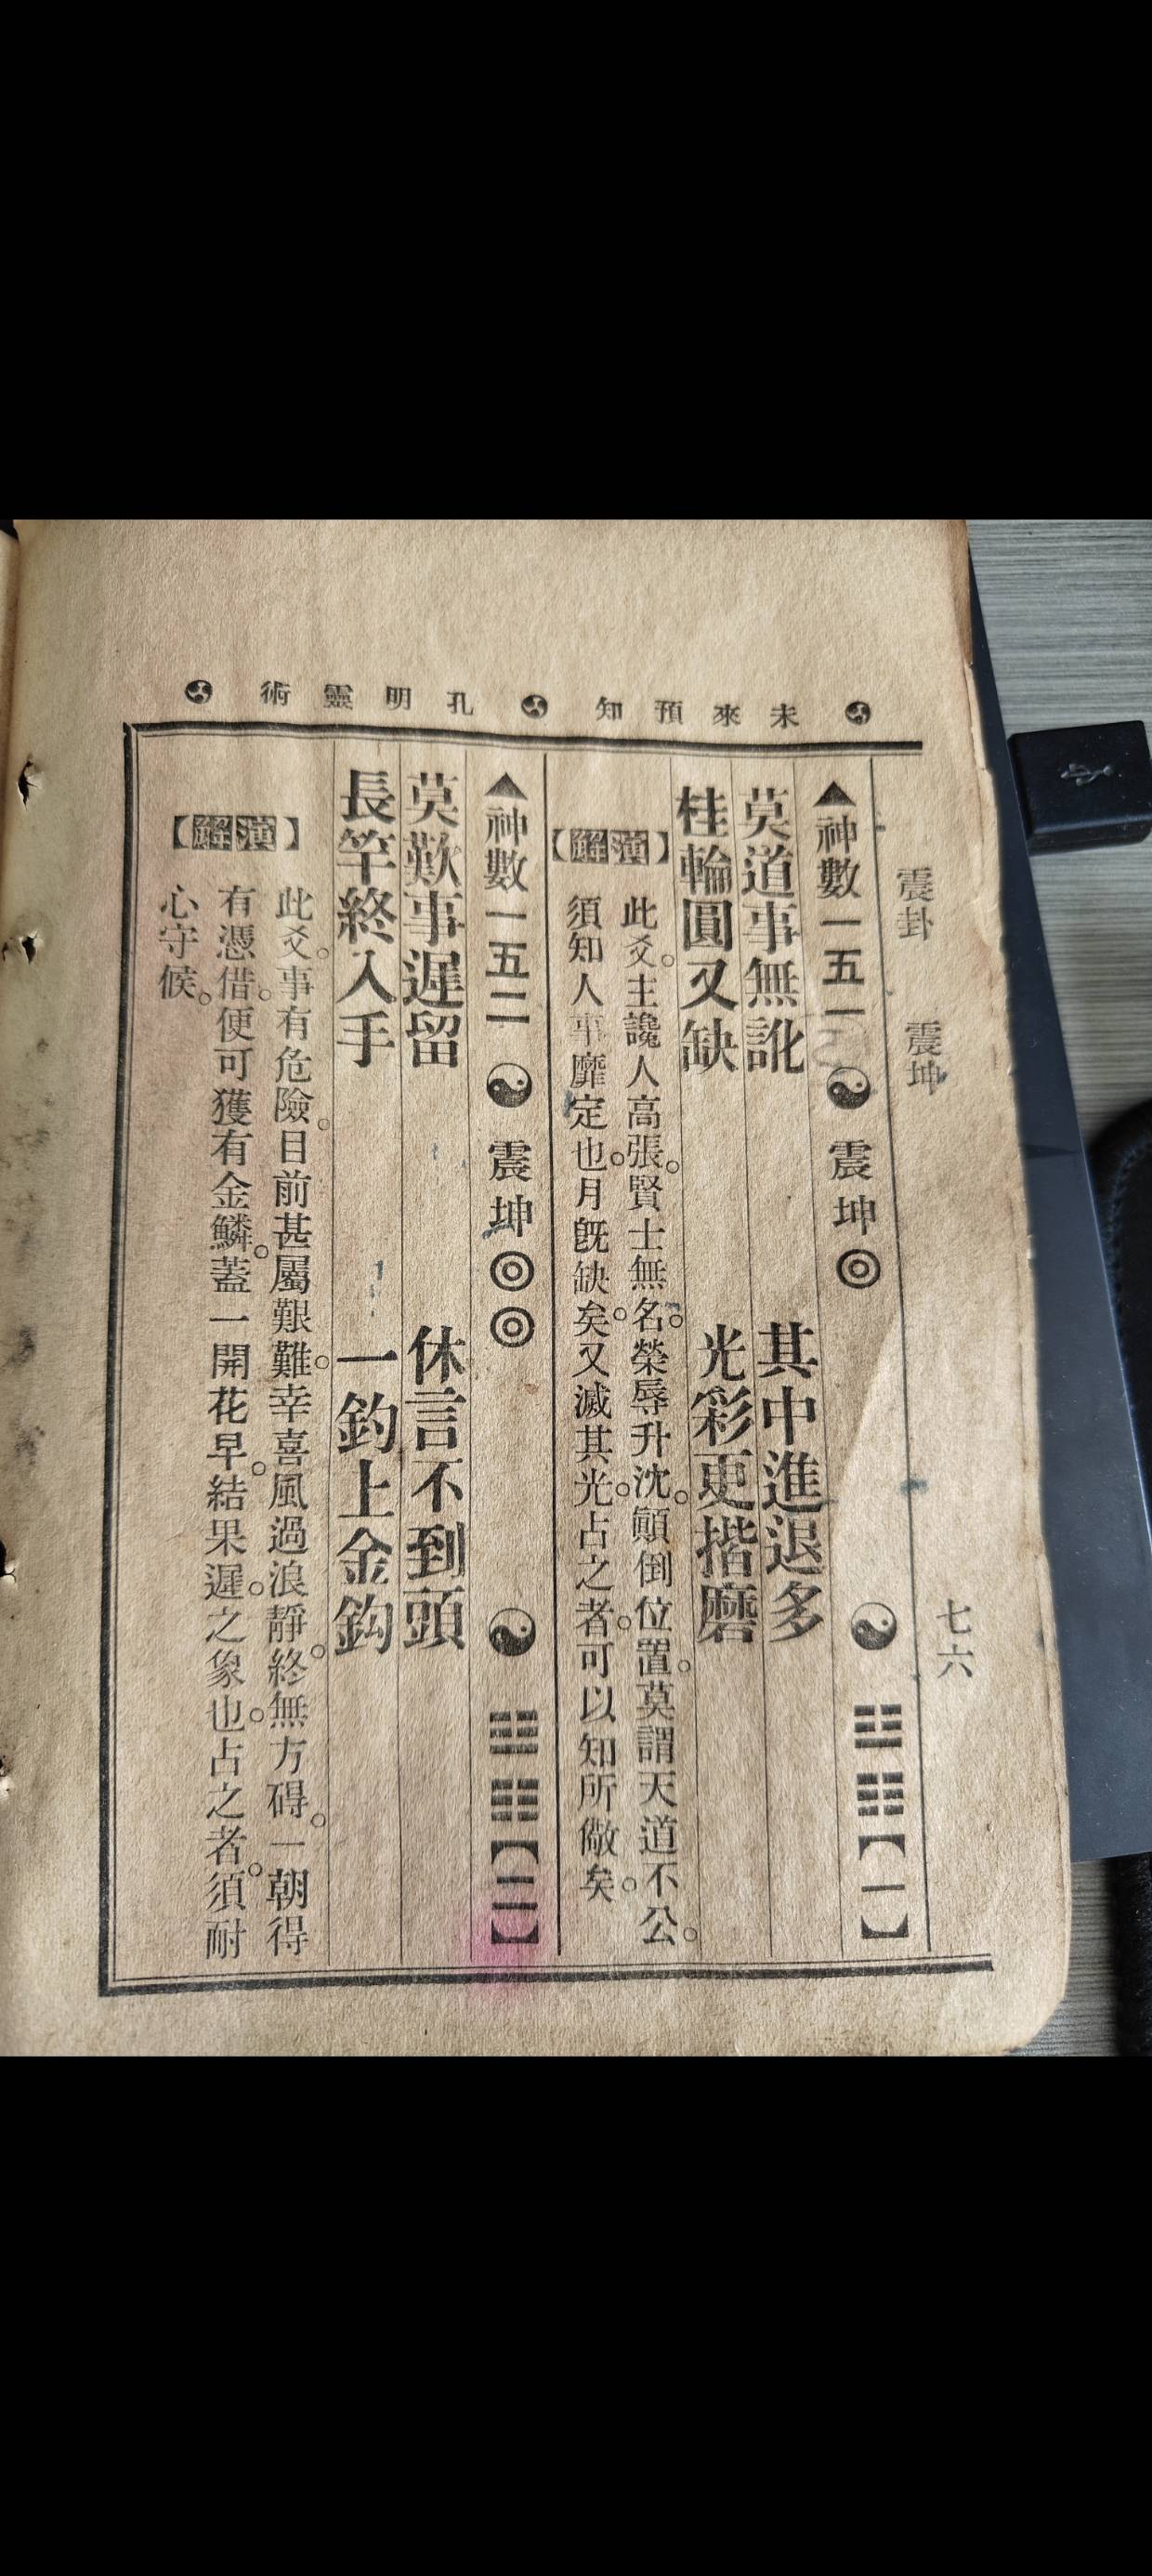 未來預知 孔明靈術
震卦 震坤 七六
▲神數一五一 ☯ 震坤◎ ☯ ☳☷【一】
莫道事無訛 其中進退多
桂輪圓又缺 光彩更揩磨
【演解】
此爻。主讒人高張。賢士無名。榮辱升沈。顚倒位置。莫謂天道不公。
須知人事靡定也。月旣缺矣。又滅其光。占之者。可以知所儆矣。
▲神數一五二 ☯ 震坤◎◎ ☯ ☳☷【二】
莫歎事遲留 休言不到頭
長竿終入手 一釣上金鈎
【演解】
此爻。事有危險。目前甚屬艱難。幸喜風過浪靜。終無方碍。一朝得
有憑借。便可獲有金鱗。蓋一開花早。結果遲。之象也。占之者。須耐
心守候。